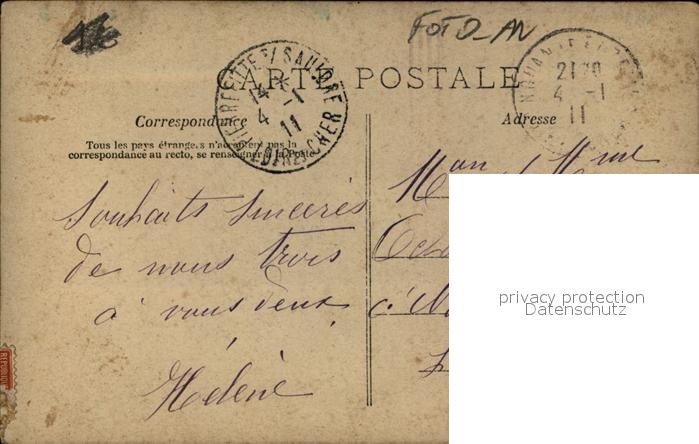 FOTO_AN
CARTE POSTALE
PIERREFITTE S/ SAULDRE
14 * -1
4 11
LOIR-&-CHER
21 10
4 -1
11
Correspondance
Adresse
Tous les pays étrangers n'acceptent pas la
correspondance au recto, se renseigner à la Poste
Mon et Mme
Souhaits sincères
de nous trois
à vous deux
Hélène
privacy protection
Datenschutz